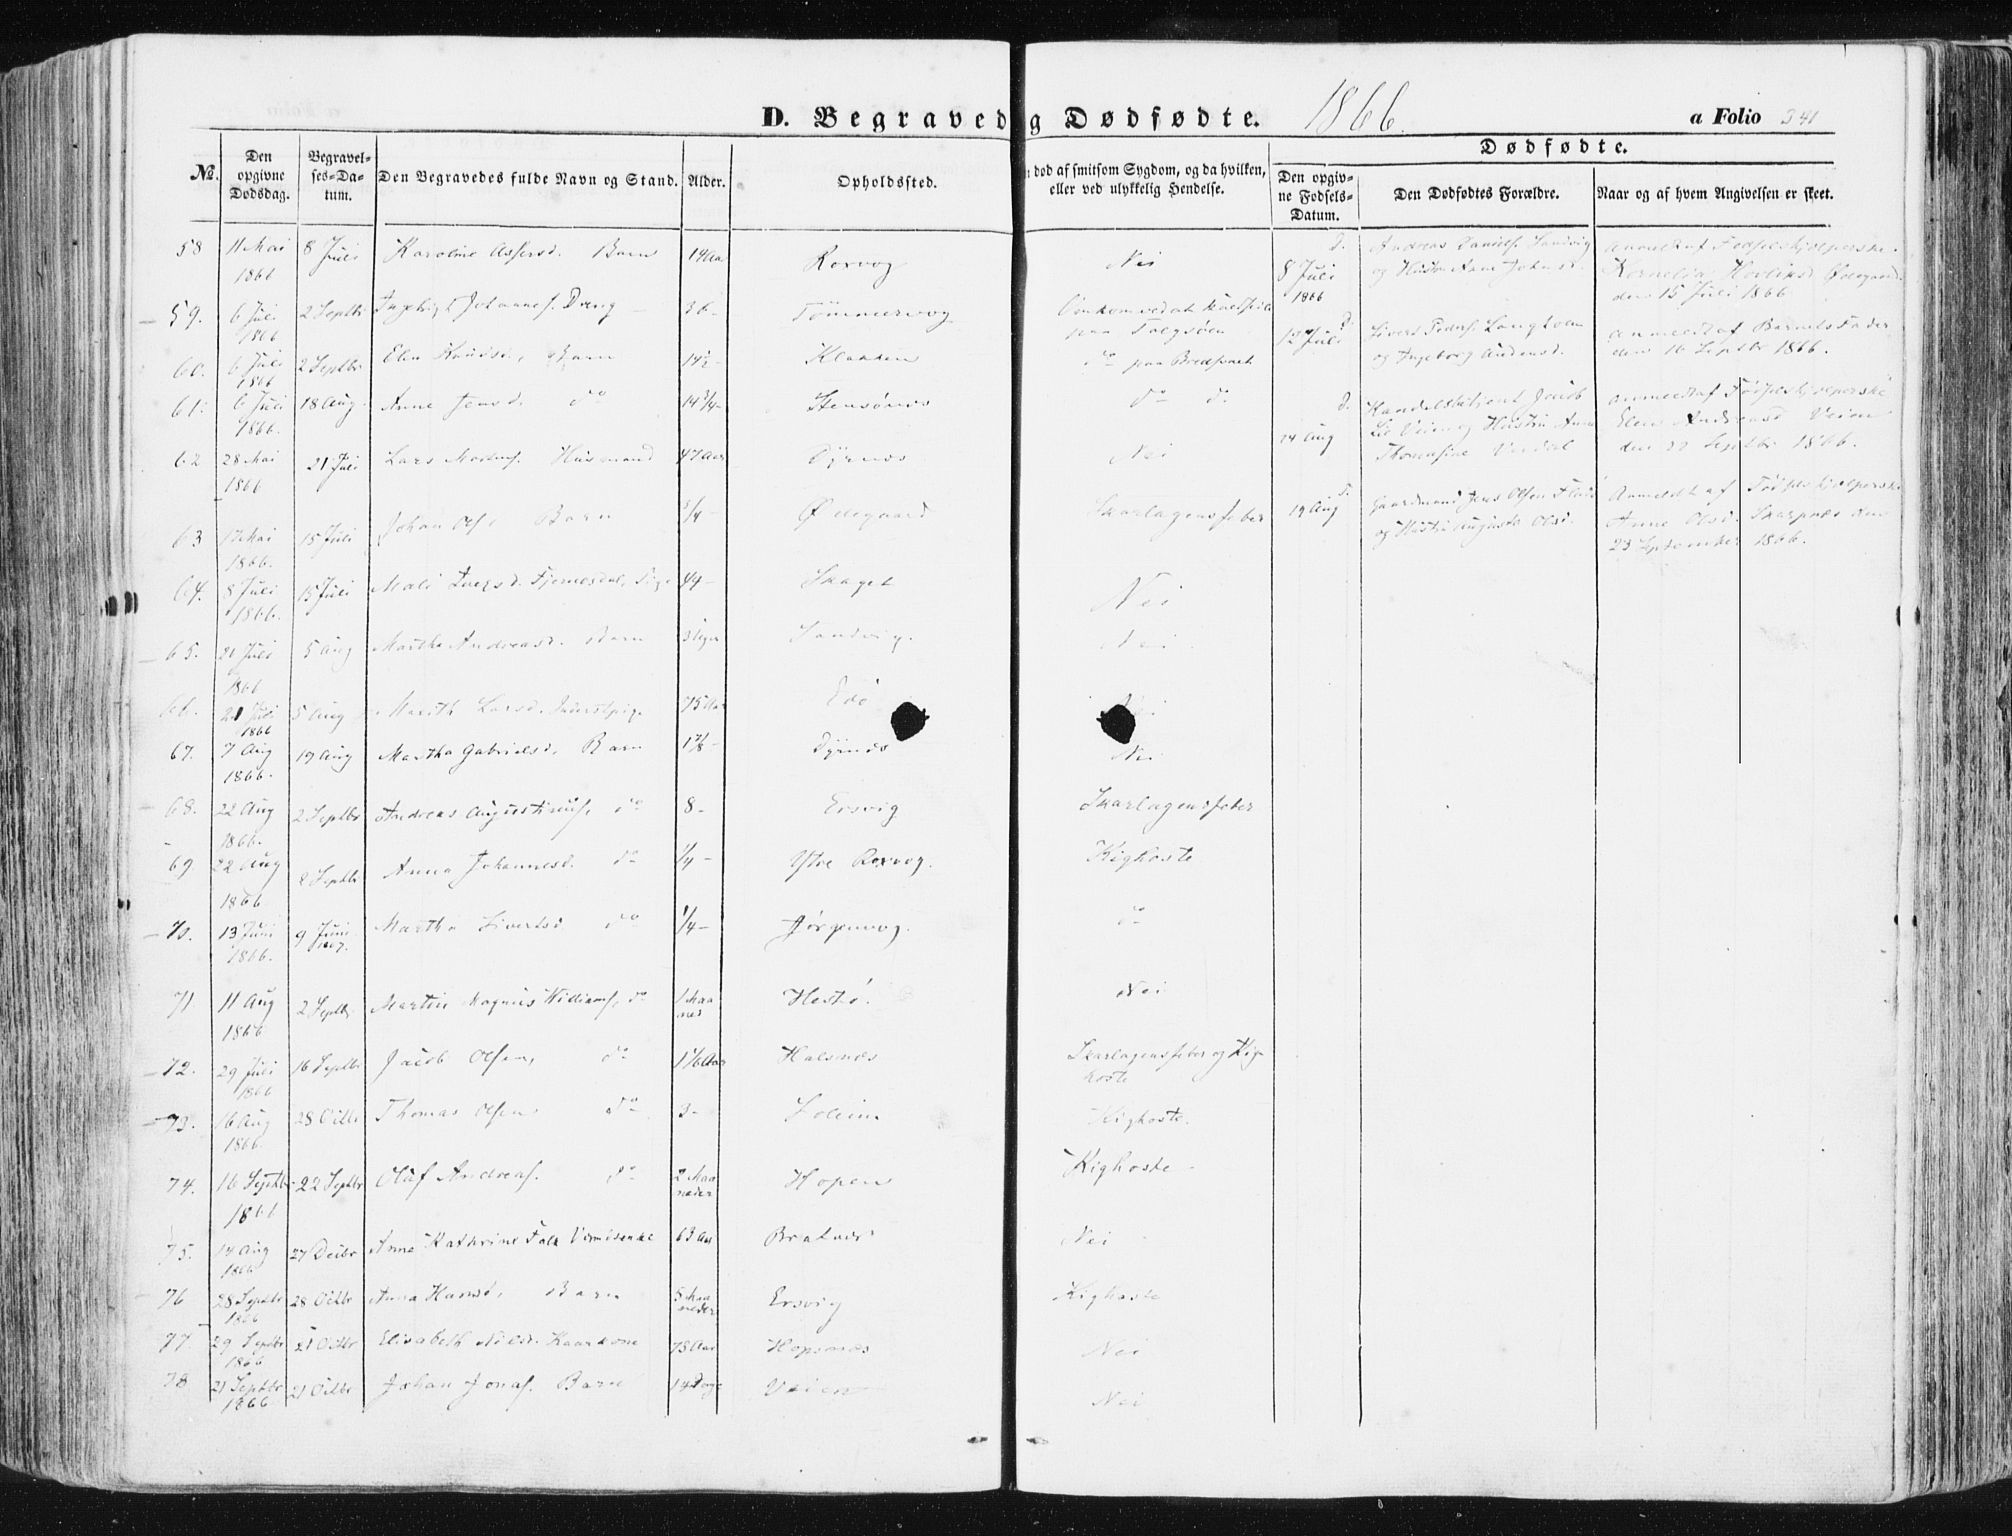 D. Begraved
g Dødfødte. 1866. a Folio 341
No.
Den opgivne Dødsdag.
Begravelses-Datum.
Den Begravedes fulde Navn og Stand.
Alder.
Opholdssted.
død af smitsom Sygdom, og da hvilken,
eller ved ulykkelig Hendelse.
Dødfødte.
Den opgivne Fødsels-Datum.
Den Dødfødtes Forældre.
Naar og af hvem Angivelsen er skeet.
58 11 Mai 1866 8 Juli Karoline Assersd. Barn 14 Aar Roxvog Nei
59. 6 Juli 1866 2 Septbr Johannes. Dreng 36 - Tømmervog Omkom ved at
60. 6 Juli 1866 2 Septbr Elen Knudsd, Barn 14½ - Klakken do paa
61. 6 Juli 1866. 18 Aug. Anne Jensd. do 14¾ - Stensønes do do
62 28 Mai 1866 21 Juli Lars Husmand 47 Aar Dyrnes Nei
63 17 Mai 1866. 15 Juli Johan Ols. Barn ¾ - Ødegaard Skarlagensfeber
64. 8 Juli 1866. 15 Juli Mali 44 - Skaget Nei
65. 21 Juli 1866 5 Aug Martha Andreasd. Barn 3 Uger Sandvig. Nei
66. 21 Juli 1866 5 Aug Marith Larsd. 75 Aar Edø Nei
67. 7 Aug 1866. 19 Aug Martha Gabrielsd, Barn Dyrnes Nei
68. 22 Aug 1866. 2 Septbr Andreas Augustinus. do 8 - Ersvig Skarlagensfeber
69. 22 Aug 1866 2 Septbr Anna Johannesd. do ¼ - Ytre Roxvog. Kighoste
70. 13 Juni 1866. 9 Juni 1867. Martha Sivertsd do ¼ - Jørgenvog. do
71 11 Aug 1866 2 Septbr Martin Magnus Williams. do 1 Maaned Hestø. Nei
72. 29 Juli 1866 16 Septbr Jacob Olsen, do 1 1/6 Aar Halsnæs Skarlagensfeber og Kighoste
73. 16 Aug 1866. 28 Octbr Thomas Olsen do 3 - Soleim Kighoste.
74. 16 Septbr 1866 22 Septbr Oluf Andreas. do 2 Maaneder Hopen Kighoste -
75. 14 Aug 1866 27 Decbr Anne Kathrine Falk 63 Aar Bratvær Nei
76 28 Septbr 1866 28 Octbr Anna Hansd, Barn 5 Maaneder Ersvig Kighoste
77 29 Septbr 1866 21 Octbr Elisabeth Nilsd. Kaarkone 78 Aar Hopsnæs Nei
78 21 Septbr 1866 21 Octbr Johan Jonas. Barn 14 Dage Veien Nei
8 Juli 1866 d. Andreas Daniels. Sandvig og Hustru Anne Johnsd.
anmeldt af Fødselshjelperske Kornelia Ødegaard den 15 Juli 1866
12 Juli d. Sivert Peders. og Ingeborg
anmeldt af Barnets Fader den 16 Septbr 1866.
14 Aug d. Handelsbetjent Jacob Veien og Hustru Anne Thomasine
anmeldt af Fødselshjelperske Elen Andreasd Veien den 22 Septbr 1866.
19 Aug d. Gaardmand Jens Olsen og Hustru Augusta Olsd.
Anmeldt af Fødselshjelperske Anne Olsd. Skarpnæs den 23 September 1866.